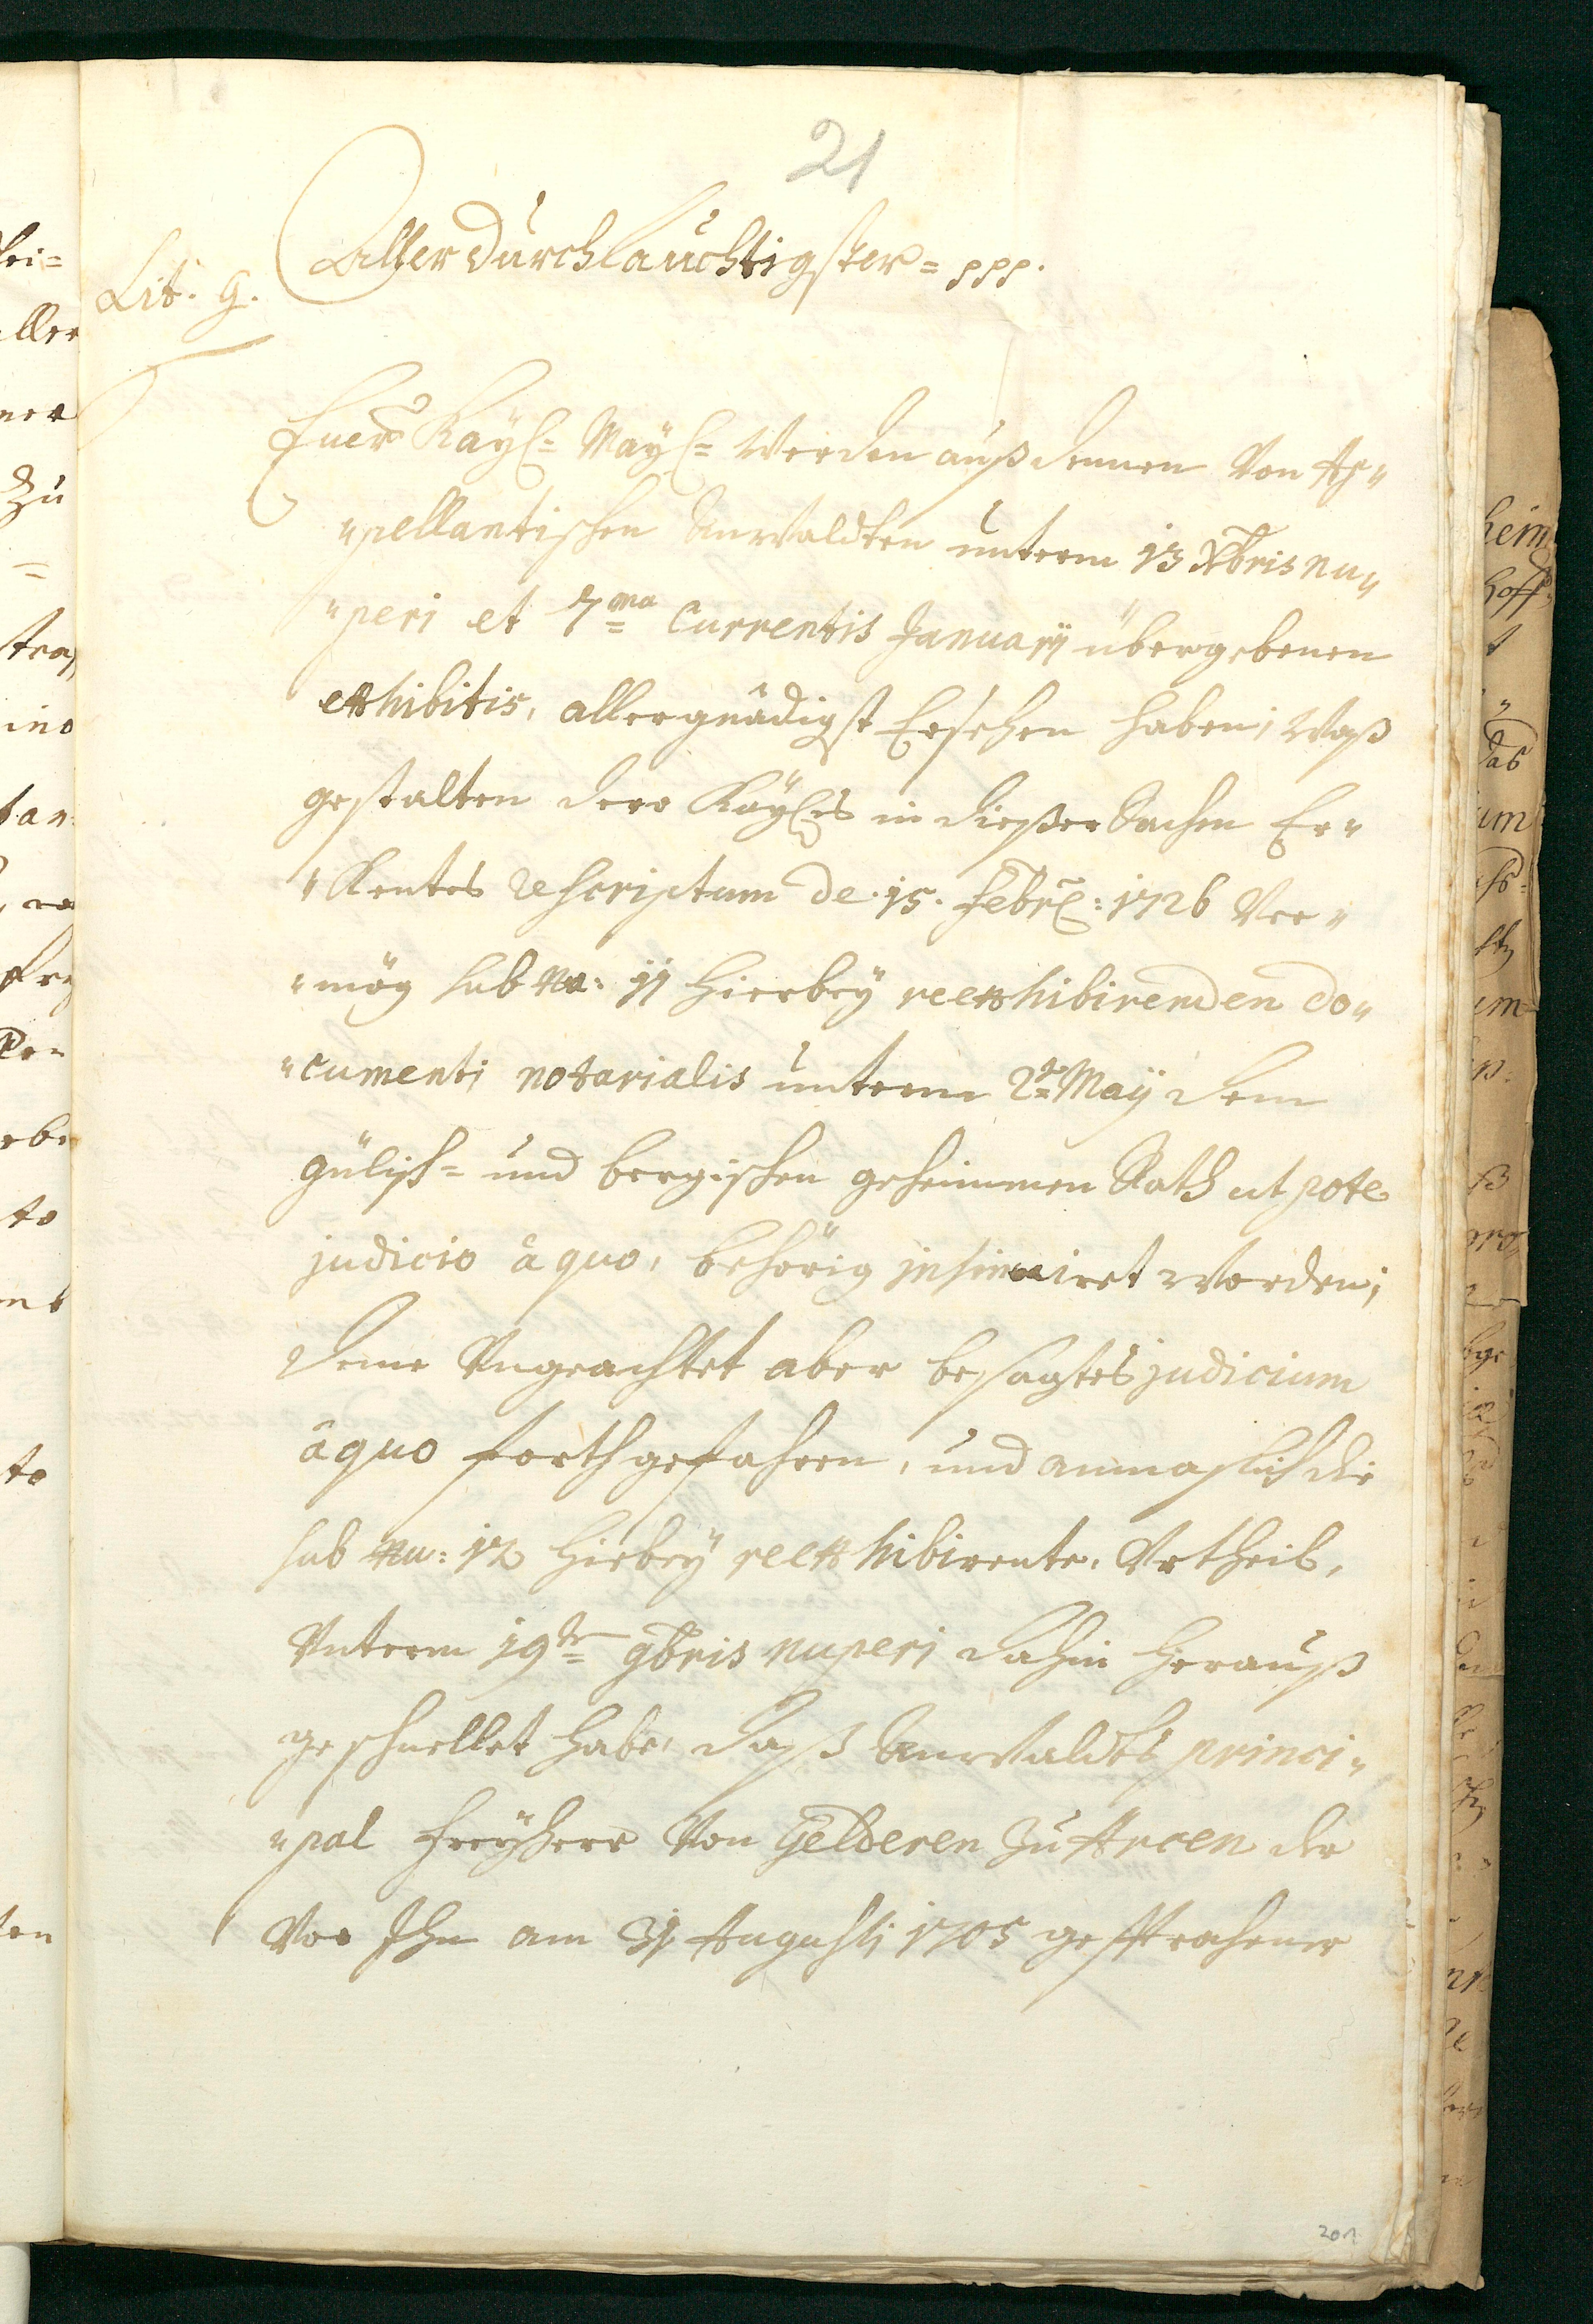 21
Allerdurchlauchtigster= ppp.
Lit. G.
Euer Kayß= Mayß= werden auß denen von Ap„
„pellantischen Anwaldten unterm 13 Xbris nu„
„peri et 7ma Currentis January übergebenen
exhibitis, allergnädigst Ersehen haben, waß
gestalten dero Kayßes in dießer Sachen Er„
„Kentes rescriptum de 15. Febr: 1726 Ver„
„mög sub No: 11 hierbey reexhibirenden do„
„cumenti notarialis unterm 2ten May dem
Gülisch= und bergischen geheimmen Rath utpote
judicio à quo, behörig insinuiret worden,
deme Ungeachtet aber besagtes judicium
à quo forthgefahren, und anmaßlich die
sub Nu: 12 hiebey reexhibirente, Urtheil,
Unterm 19ten 9bris nuperi dahin herauß
geschnellet habe, daß Anwaldts princi„
„pal Freyherr von Gelderen zu Arcen der
Vor Ihn am 31 Augusti 1705
201